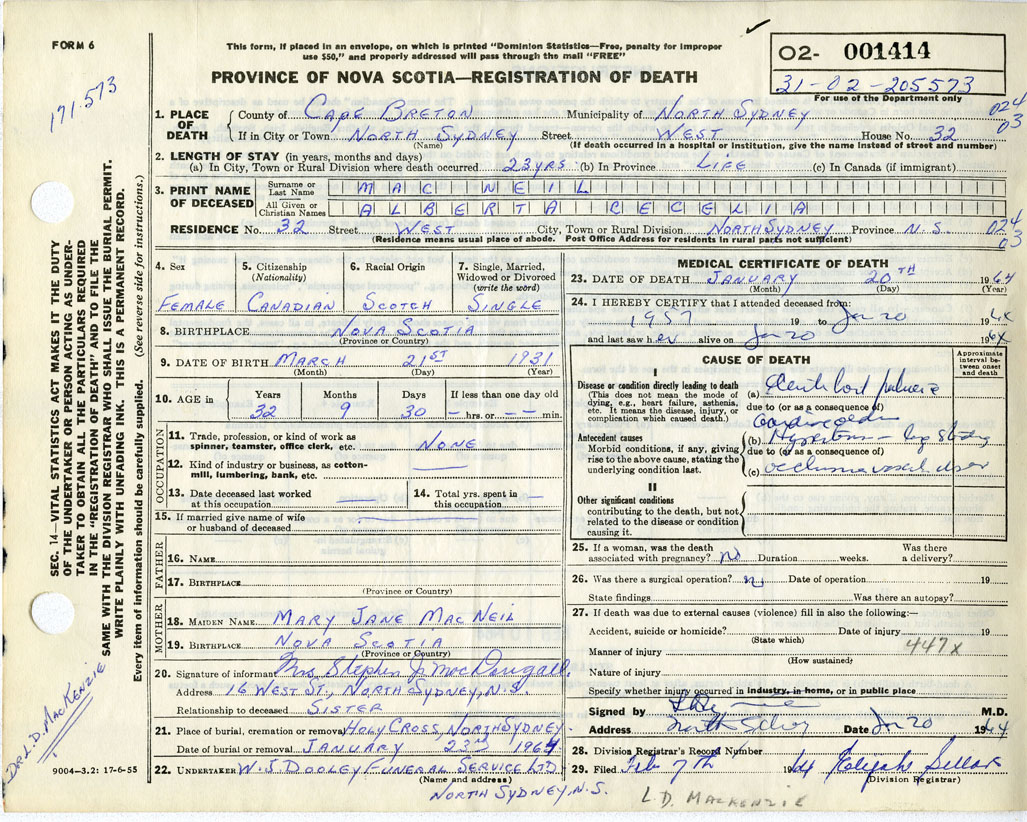 FORM 6
171.573
This form, if placed in an envelope, on which is printed "Dominion Statistics—Free, penalty for improper
use $50," and properly addressed will pass through the mail "FREE"
PROVINCE OF NOVA SCOTIA—REGISTRATION OF DEATH
O2- 001414
31-02-205573
For use of the Department only
024
03
1. PLACE OF DEATH County of CAPE BRETON Municipality of NORTH SYDNEY
If in City or Town NORTH SYDNEY Street WEST House No. 32
(Name) (If death occurred in a hospital or institution, give the name instead of street and number)
2. LENGTH OF STAY (in years, months and days)
(a) In City, Town or Rural Division where death occurred 23 YRS (b) In Province LIFE (c) In Canada (if immigrant)
3. PRINT NAME OF DECEASED
Surname or Last Name MAC NEIL
All Given or Christian Names ALBERTA CECELIA
RESIDENCE No. 32 Street WEST City, Town or Rural Division NORTH SYDNEY Province N.S.
024
03
(Residence means usual place of abode. Post Office Address for residents in rural parts not sufficient)
4. Sex
FEMALE
5. Citizenship (Nationality)
CANADIAN
6. Racial Origin
SCOTCH
7. Single, Married, Widowed or Divorced (write the word)
SINGLE
8. BIRTHPLACE NOVA SCOTIA
(Province or Country)
9. DATE OF BIRTH MARCH 21ST 1931
(Month) (Day) (Year)
10. AGE in Years Months Days If less than one day old
32 9 30 — hrs. or — — min.
OCCUPATION
11. Trade, profession, or kind of work as spinner, teamster, office clerk, etc. NONE
12. Kind of industry or business, as cotton-mill, lumbering, bank, etc. —
13. Date deceased last worked at this occupation
14. Total yrs. spent in this occupation —
15. If married give name of wife or husband of deceased —
FATHER
16. NAME
17. BIRTHPLACE
(Province or Country)
MOTHER
18. MAIDEN NAME MARY JANE MAC NEIL
19. BIRTHPLACE NOVA SCOTIA
(Province or Country)
20. Signature of informant Mrs Stephen J. MacDougall
Address 16 WEST ST., NORTH SYDNEY, N.S.
Relationship to deceased SISTER
21. Place of burial, cremation or removal HOLY CROSS, NORTH SYDNEY
Date of burial or removal JANUARY 23RD 1964
22. UNDERTAKER W. J. DOOLEY FUNERAL SERVICE LTD
(Name and address)
NORTH SYDNEY, N.S.
MEDICAL CERTIFICATE OF DEATH
23. DATE OF DEATH JANUARY 20TH 1964
(Month) (Day) (Year)
24. I HEREBY CERTIFY that I attended deceased from:
1957 19 to Jan 20 19
and last saw her alive on Jan 20 19
CAUSE OF DEATH
Approximate interval between onset and death
I
Disease or condition directly leading to death
(This does not mean the mode of dying, e.g., heart failure, asthenia, etc. It means the disease, injury, or complication which caused death.)
(a)
due to (or as a consequence of)
Antecedent causes
Morbid conditions, if any, giving rise to the above cause, stating the underlying condition last.
(b)
due to (or as a consequence of)
(c)
II
Other significant conditions
contributing to the death, but not related to the disease or condition causing it.
25. If a woman, was the death associated with pregnancy? no Duration weeks. Was there a delivery?
26. Was there a surgical operation? Date of operation 19
State findings Was there an autopsy?
27. If death was due to external causes (violence) fill in also the following:—
Accident, suicide or homicide? Date of injury 19
(State which)
447x
Manner of injury
(How sustained)
Nature of injury
Specify whether injury occurred in industry, in home, or in public place
Signed by M.D.
Address Date Jan 20 1964
28. Division Registrar's Record Number
29. Filed Feb 7th 1964
(Division Registrar)
L.D. MACKENZIE
SEC. 14—VITAL STATISTICS ACT MAKES IT THE DUTY
OF THE UNDERTAKER OR PERSON ACTING AS UNDER-
TAKER TO OBTAIN ALL THE PARTICULARS REQUIRED
IN THE "REGISTRATION OF DEATH" AND TO FILE THE
SAME WITH THE DIVISION REGISTRAR WHO SHALL ISSUE THE BURIAL PERMIT.
WRITE PLAINLY WITH UNFADING INK. THIS IS A PERMANENT RECORD.
Every item of information should be carefully supplied. (See reverse side for instructions.)
DR L.D. MACKENZIE
9004—3.2: 17-6-55